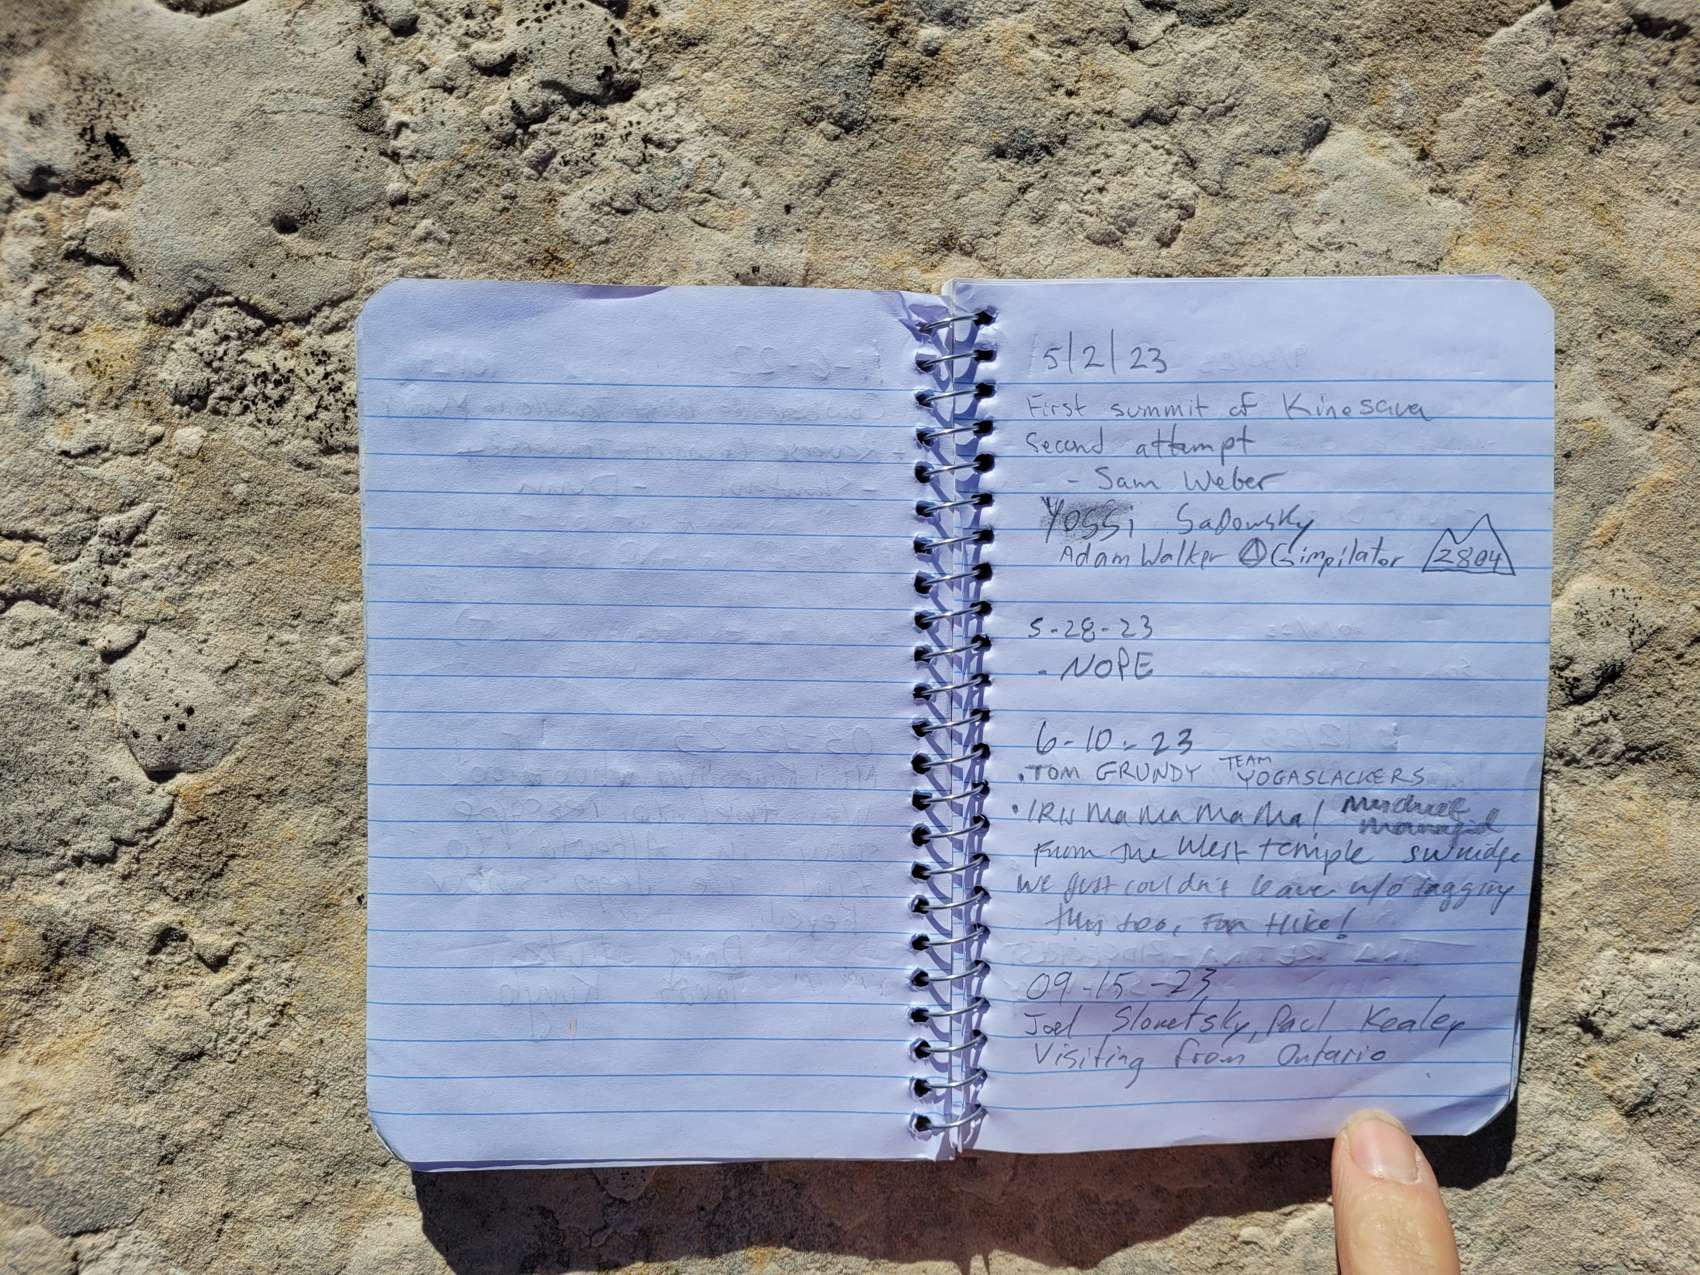 5/2/23
First summit of Kinesava
Second attempt
- Sam Weber
Yossi Sadowsky
Adam Walker Gimpilator 2804
5-28-23
- NOPE
6-10-23
• TOM GRUNDY TEAM YOGASLACKERS
• IRIS Ma Ma Ma Ma!
From the West temple
We just couldn't leave w/o tagging
this too, Fun Hike!
09-15-23
Joel Slonetsky, Paul Kealey
Visiting from Ontario